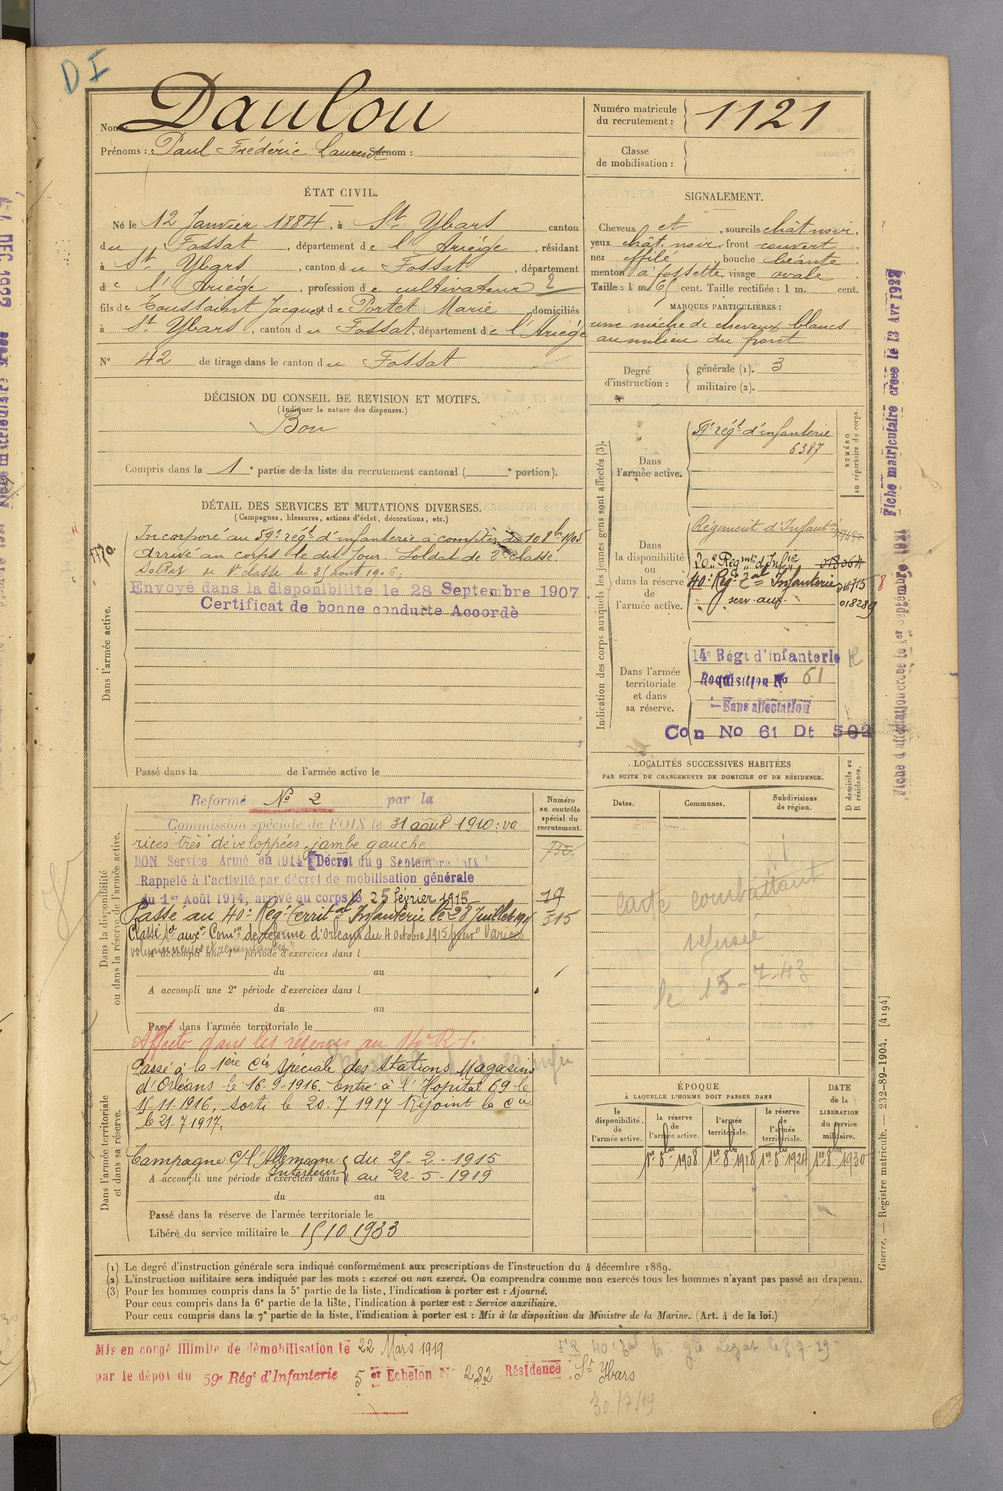 DI
Nom : Daulou
Prénoms : Paul Frédéric Laurent Surnom :
Numéro matricule du recrutement : 1121
Classe de mobilisation :
ÉTAT CIVIL.
Né le 12 Janvier 1884, à St Ybars canton
du Fossat, département de l'Ariège, résidant
à St Ybars, canton du Fossat, département
de l'Ariège, profession de cultivateur 2
fils de Toussaint Jacques et de Portet Marie domiciliés
à St Ybars, canton du Fossat, département de l'Ariège
N° 42 de tirage dans le canton du Fossat
SIGNALEMENT.
Cheveux et, sourcils chât noir,
yeux chât. noir, front couvert
nez effilé, bouche béante,
menton à fossette, visage ovale
Taille : 1 m. 61 cent. Taille rectifiée : 1 m. cent.
MARQUES PARTICULIÈRES :
une mèche de cheveux blancs
au milieu du front
Degré d'instruction : générale (1). 3
militaire (2).
DÉCISION DU CONSEIL DE REVISION ET MOTIFS.
(Indiquer la nature des dispenses.)
Bon
Compris dans la 1e partie de la liste du recrutement cantonal ( e portion).
DÉTAIL DES SERVICES ET MUTATIONS DIVERSES.
(Campagnes, blessures, actions d'éclat, décorations, etc.)
Dans l'armée active.
Incorporé au 59e régt d'infanterie à compter du 10 8bre 1905
Arrivé au corps le dit jour. Soldat de 2e classe.
Soldat de 1e classe le 25 août 1906.
Envoyé dans la disponibilité le 28 Septembre 1907
Certificat de bonne conduite Accordé
Passé dans la de l'armée active le
Indication des corps auxquels les jeunes gens sont affectés (3).
NUMÉRO au répertoire du corps.
Dans l'armée active.
59e régt d'infanterie
6387
Dans la disponibilité ou dans la réserve de l'armée active.
Régiment d'Infant
20e Régmt d'Infie
40e Régt Tal Infanterie 515
serv. aux. 018289
Dans l'armée territoriale et dans sa réserve.
14e Régt d'Infanterie
Réquisition No 61
Sans affectation
Con No 61 Dt 502
Fiche matriculaire créée le 13 Avr 1927
LOCALITÉS SUCCESSIVES HABITÉES
PAR SUITE DE CHANGEMENTS DE DOMICILE OU DE RÉSIDENCE.
Dates. Communes. Subdivisions de région. D domicile ou R résidence.
carte combattant
refusée
le 15-7-43
Dans la disponibilité ou dans la réserve de l'armée active.
Numéro au contrôle spécial du recrutement.
Réformé No 2 par la
Commission spéciale de FOIX le 31 août 1910 : va
rices très développées jambe gauche
BON Service Armé en 1914 (Décret du 9 Septembre 1914)
Rappelé à l'activité par décret de mobilisation générale
du 1er Août 1914, arrivé au corps le 25 février 1915
Passé au 40e Rég. Territal Infanterie le 28 Juillet 1915
Classé Sce auxre Comon de réforme d'Orléans du 4 octobre 1915 pour "Varices
A accompli une 1e période d'exercices dans l
du au
A accompli une 2e période d'exercices dans l
du au
Passé dans l'armée territoriale le
Affecté dans les réserves au 14e R.I.
Dans l'armée territoriale et dans sa réserve.
Passé à la 1ère Cie spéciale des Stations Magasins
d'Orléans le 16-9-1916. Entré à l'Hopital 69 le
11-11-1916, sorti le 20-7 1917 Rejoint la Cie
le 21.7 1917.
Campagne C/ l'Allemagne du 25-2-1915
Intérieur au 22-5-1919
A accompli une période d'exercices dans
du au
Passé dans la réserve de l'armée territoriale le
Libéré du service militaire le 15 10 1933
ÉPOQUE
À LAQUELLE L'HOMME DOIT PASSER DANS
la disponibilité de l'armée active. la réserve de l'armée active. l'armée territoriale. la réserve de l'armée territoriale.
DATE de la LIBÉRATION du service militaire.
1er 8bre 1908 1er 8bre 1918 1er 8bre 1924 1er 8bre 1930
Guerre. — Registre matricule. — 232-89-1904. [4194]
(1) Le degré d'instruction générale sera indiqué conformément aux prescriptions de l'instruction du 4 décembre 1889.
(2) L'instruction militaire sera indiquée par les mots : exercé ou non exercé. On comprendra comme non exercés tous les hommes n'ayant pas passé au drapeau.
(3) Pour les hommes compris dans la 5e partie de la liste, l'indication à porter est : Ajourné.
Pour ceux compris dans la 6e partie de la liste, l'indication à porter est : Service auxiliaire.
Pour ceux compris dans la 7e partie de la liste, l'indication à porter est : Mis à la disposition du Ministre de la Marine. (Art. 4 de la loi.)
Mis en congé illimité de démobilisation le 22 Mars 1919
par le dépôt du 59e Régt d'Infanterie 5e Echelon No 282 Résidence St Ybars
30/7/19